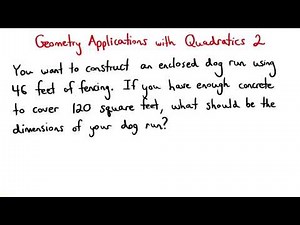 Geometry Applications with Quadratics 2
You want to construct an enclosed dog run using
46 feet of fencing. If you have enough concrete
to cover 120 square feet, what should be the
dimensions of your dog run?